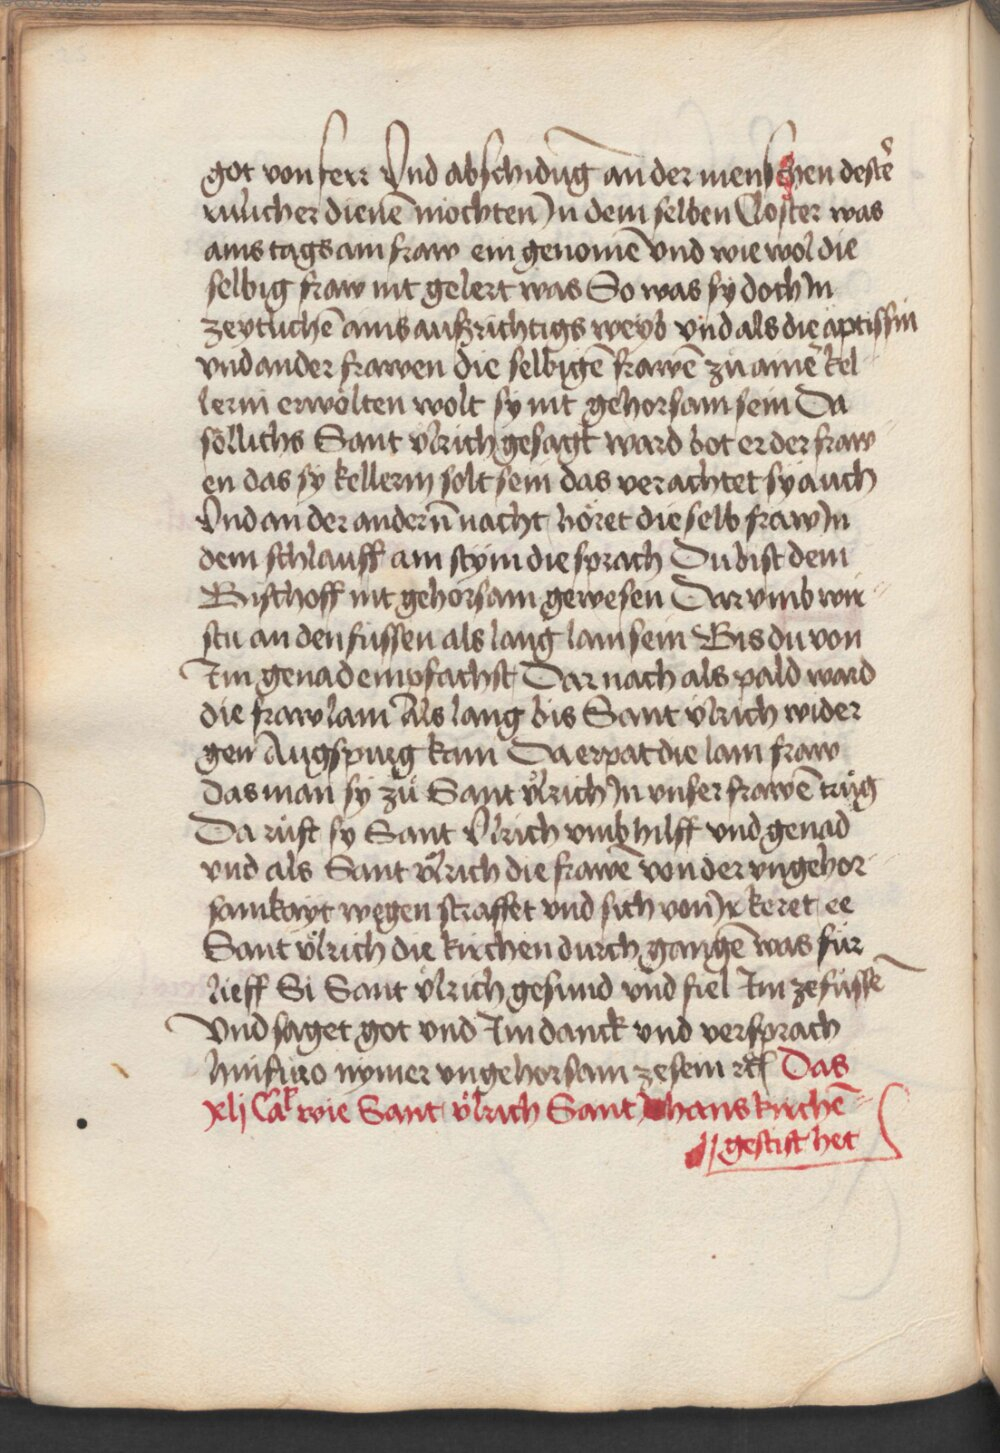 got von ferr Vnd abschidūg an der menschen destē
rwlicher dienē mochten In dem selben Closter was
ains tags ain fraw ein genomē Vnd wie wol die
selbig fraw nit gelert was So was sy doch In
zeytlichē ains aufzrichtigs weyb vnd als die aptissin
vnd ander frawen die selbigē frawē zů ainē kel
lerin erwölten wolt sy nit gehorsam sein Da
söllichs Sant vlrich gesagt ward bot er der fraw
en das sy kellerin solt sein das verachtet sy auch
Vnd an der anderñ nacht höret die selb fraw In
dem schlauff ain stym die sprach Du bist dem
Bischoff nit gehorsam gewesen Dar vmb wir
stu an den füssen als lang lam sein Bis du von
Im genad empfachst Dar nach als pald ward
die fraw lam Als lang bis Sant vlrich wider
gen Augspurg kam Da erpat die lam fraw
das man sy zů Sant vͦlrich In vnser frawē trůg
Da rüft sy Sant Vlrich vmb hilff vnd genad
vnd als Sant vͦlrich die frawē von der vngehor
samkayt wegen straffet vnd sich von Ir keret ee
Sant vͦlrich die kirchen durch gangē was für
lieff Si Sant vͦlrich gesund vnd fiel Im ze füssē
Vnd saget got vnd Im danck vnd versprach
hinfüro nymer vngehorsam ze sein ꝛc Das
xlj Ca wie Sant vͦlrich Sant Johans kirchē
gestift het